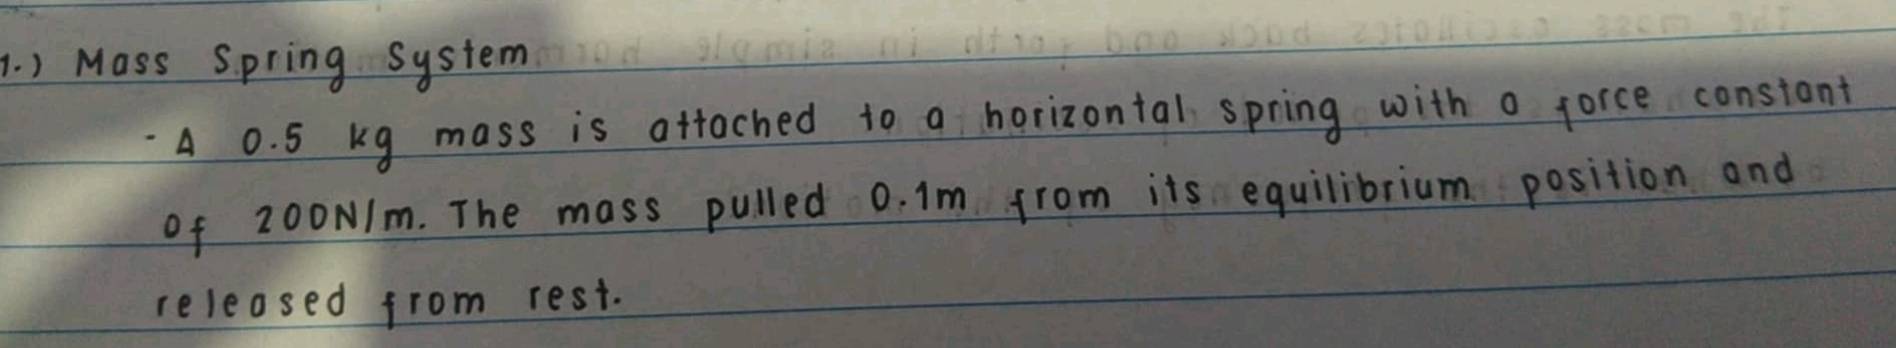 1.) Mass Spring System
- A 0.5 kg mass is attached to a horizontal spring with a force constant
of 200N/m. The mass pulled 0.1m from its equilibrium position and
released from rest.